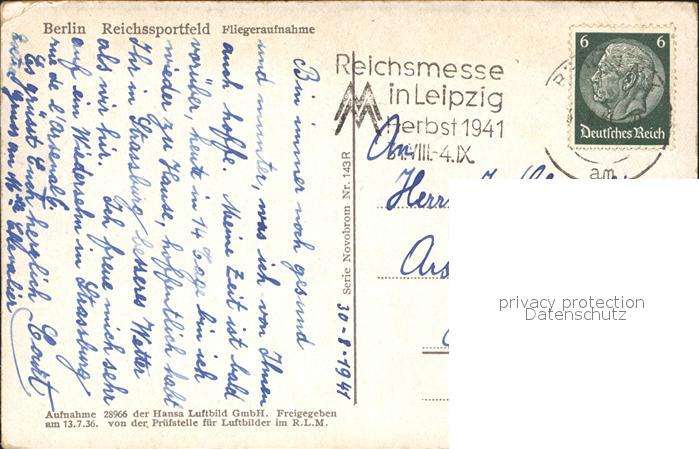 Berlin Reichssportfeld Fliegeraufnahme
Bin immer noch gesund
und munter, was ich von Ihnen
auch hoffe. Meine Zeit ist bald
vorüber, heute in 14 Tage bin ich
wieder zu Hause, hoffentlich habt
Ihr in Strassburg besseres Wetter
als wir hir. Ich freue mich sehr
auf ein Wiedersehn in Strassburg
rue de l'Arsenal.
Es grüsst Euch herzlich
30-8-1941
Serie Novobrom Nr. 143 R
Aufnahme 28966 der Hansa Luftbild GmbH. Freigegeben
am 13.7.36. von der Prüfstelle für Luftbilder im R.L.M.
Reichsmesse
in Leipzig
Herbst 1941
31.VIII.-4.IX.
6 6
Deutsches Reich
am
An
Herrn
privacy protection
Datenschutz